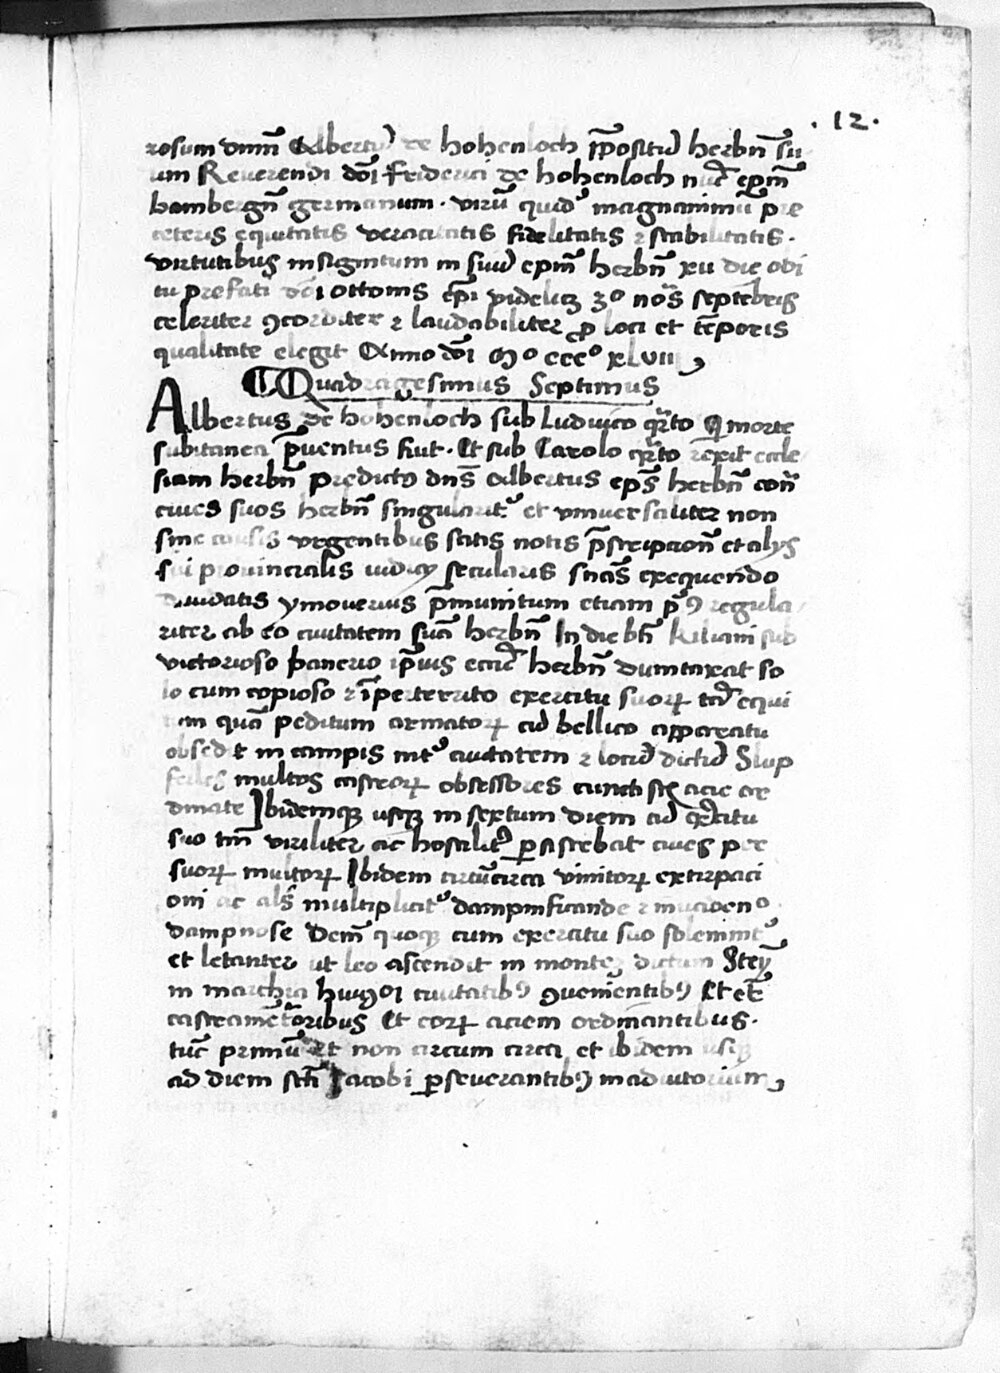 . 12 .
rosum dnm̄ Albertū de hohenloch p̄positū herbn̄ fri
um Reverendi dn̄i Friderici de hohenloch nūc ep̄m̄
bambergn̄ germanum . virū quidē magnanimū pre
ceteris equitatis veracitatis fidelitatis ⁊ stabilitatis .
virtutibus insignitum in suū epm̄ herbn̄ xii die obi
tu prefati dn̄i ottonis ep̄i videlicꝫ 3º nōs septēbris
celeriter ꝯcorditer ⁊ laudabiliter p̱ loci et tēporis
qualitate elegit Anno dn̄i Mº cccº xLviii
Quadragesimus Septimus
Albertus de hohenloch sub Ludvico qr̄to Qui morte
subitanea p̄ventus fuit . Et sub Carolo qr̄to rexit eccle
siam herbn̄ predictꝰ dns̄ Albertus eps̄ herbn̄ con̄
cives suos herbn̄ singularitʳ et universaliter non
sine causis urgentibus satis notis p̄scripcion̄ et alijs
sui provincialis iudicij secularis sn̄as exequendo
ymoverius p̄munitum etiam ꝯ regula
riter ab eo civitatem suā herbn̄ In die bt̄i kiliani sub
victorioso panerio ip̄ius eccīe herbn̄ dumtaxat so
lo cum copioso ⁊ īperterrito exercitu suorꝝ tā equi
tum quā peditum armatorꝝ ad bellico apparatu
obsedit in campis intʳ civitatem ⁊ locū dictū Slup
multos castrorꝝ obsessores cuncti acie or
dinate Ibidemqꝫ usqꝫ in sextum diem cū exercitu
suo tm̄ viriliter ac hostilitʳ p̱sistebat cives per
suorꝝ multorꝝ Ibidem circūcirca vinitorꝝ extirpaci
oni ac als̄ multiplicitʳ dampnificande ⁊ incidendo
dampnose Dem̄ quoqꝫ cum exercitu suo solemnitʳ
et letanter ut leo ascendit in monteꝫ dictum Steyn
in marchia civitatibꝰ ꝯvenientibꝰ Et
castrametatoribus Et eorꝝ aciem ordinantibus .
tūc primū Et non circum circa et ibidem usqꝫ
ad diem sct̄i Jacobi p̱severantibꝰ in adiutorium